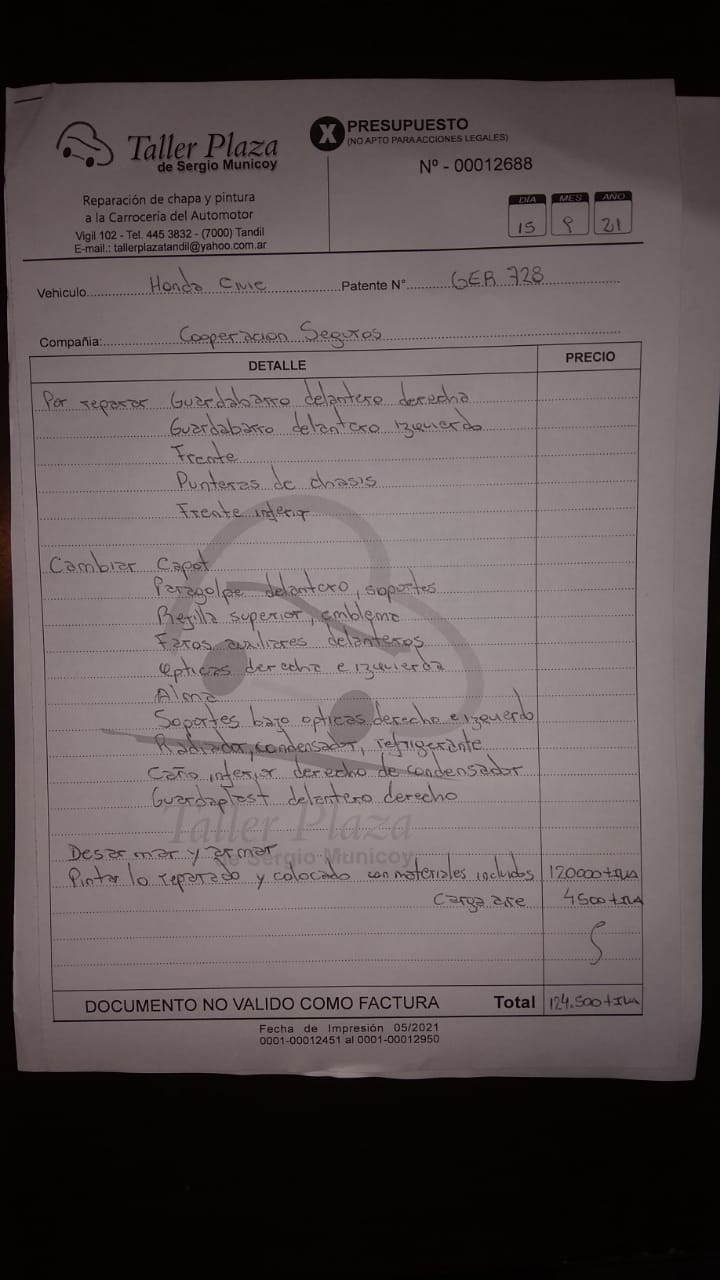 Taller Plaza
de Sergio Municoy
Reparación de chapa y pintura
a la Carrocería del Automotor
Vigil 102 - Tel. 445 3832 - (7000) Tandil
E-mail.: tallerplazatandil@yahoo.com.ar
X PRESUPUESTO
(NO APTO PARA ACCIONES LEGALES)
Nº - 00012688
DIA MES AÑO
15 9 21
Vehiculo Honda Civic Patente N° GER 728
Compañia: Cooperacion Seguros
DETALLE PRECIO
Por reparar Guardabarro delantero derecha
Guardabarro delantero izquierdo
Frente
Punteras de chasis
Frente inferior
Cambiar Capot
Paragolpe delantero, soportes
Rejilla superior, emblema
Faros auxiliares delanteros
Opticas derecha e izquierda
Alma
Soportes bajo opticas derecho e izquerdo
Radiador, condensador, refrigerante
Caño inferior derecho de condensador
Guardaplast delantero derecho
Taller Plaza
de Sergio Municoy
Desarmar y armar
Pintar lo reparado y colocado con materiales incluidos 120000 + IVA
Carga aire 4500 + IVA
DOCUMENTO NO VALIDO COMO FACTURA Total 124.500 + IVA
Fecha de Impresión 05/2021
0001-00012451 al 0001-00012950